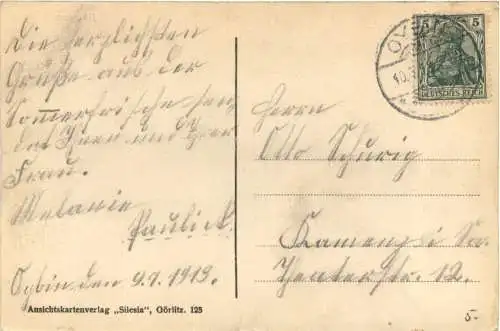 Die herzlichsten
Grüße aus der
Sommerfrische sen
det Ihnen und Ihrer
Frau.
Melanie
Paulick.
Oybin den 9.7.1913.
Ansichtskartenverlag „Silesia“, Görlitz. 125
5 5
DEUTSCHES REICH
OYB
10.
Herrn
Otto Schurig
Kamenz i Sa.
Theaterstr. 12.
5-